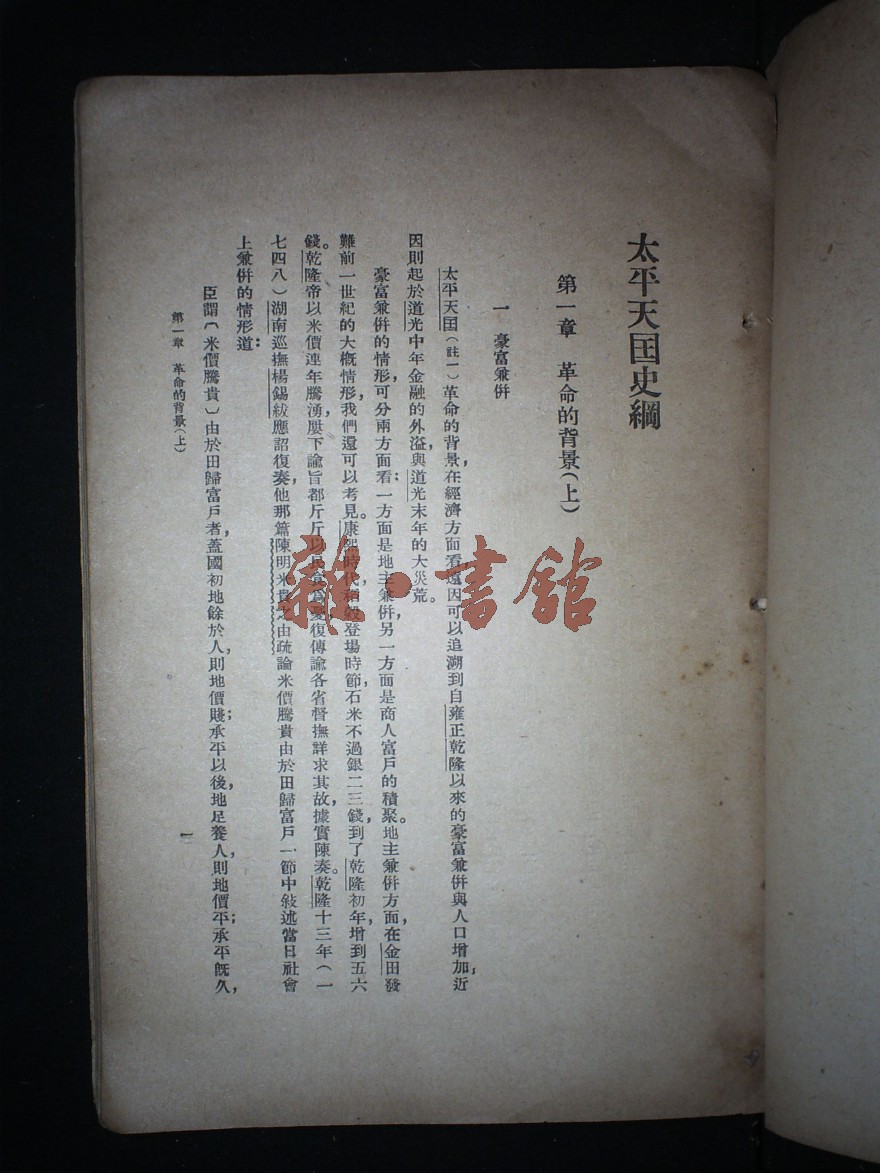 太平天囯史綱
第一章　革命的背景(上)
一　豪富兼併
太平天囯(註一)革命的背景，在經濟方面看遠因可以追溯到自雍正乾隆以來的豪富兼併與人口增加，近
因則起於道光中年金融的外溢與道光末年的大災荒。
豪富兼併的情形，可分兩方面看：一方面是地主兼併，另一方面是商人富戶的積聚。地主兼併方面，在金田發
難前一世紀的大概情形，我們還可以考見。康熙時代，稻穀登場時節，石米不過銀二三錢，到了乾隆初年，增到五六
錢。乾隆帝以米價連年騰湧，屢下諭旨都斤斤以民食為憂，復傳諭各省督撫詳求其故，據實陳奏。乾隆十三年(一
七四八)湖南巡撫楊錫紱應詔復奏，他那篇陳明米貴之由疏論米價騰貴由於田歸富戶一節中敍述當日社會
上兼併的情形道：
臣謂(米價騰貴)由於田歸富戶者，蓋國初地餘於人，則地價賤；承平以後，地足養人，則地價平；承平旣久，
第一章　革命的背景(上)
一
雜·書館